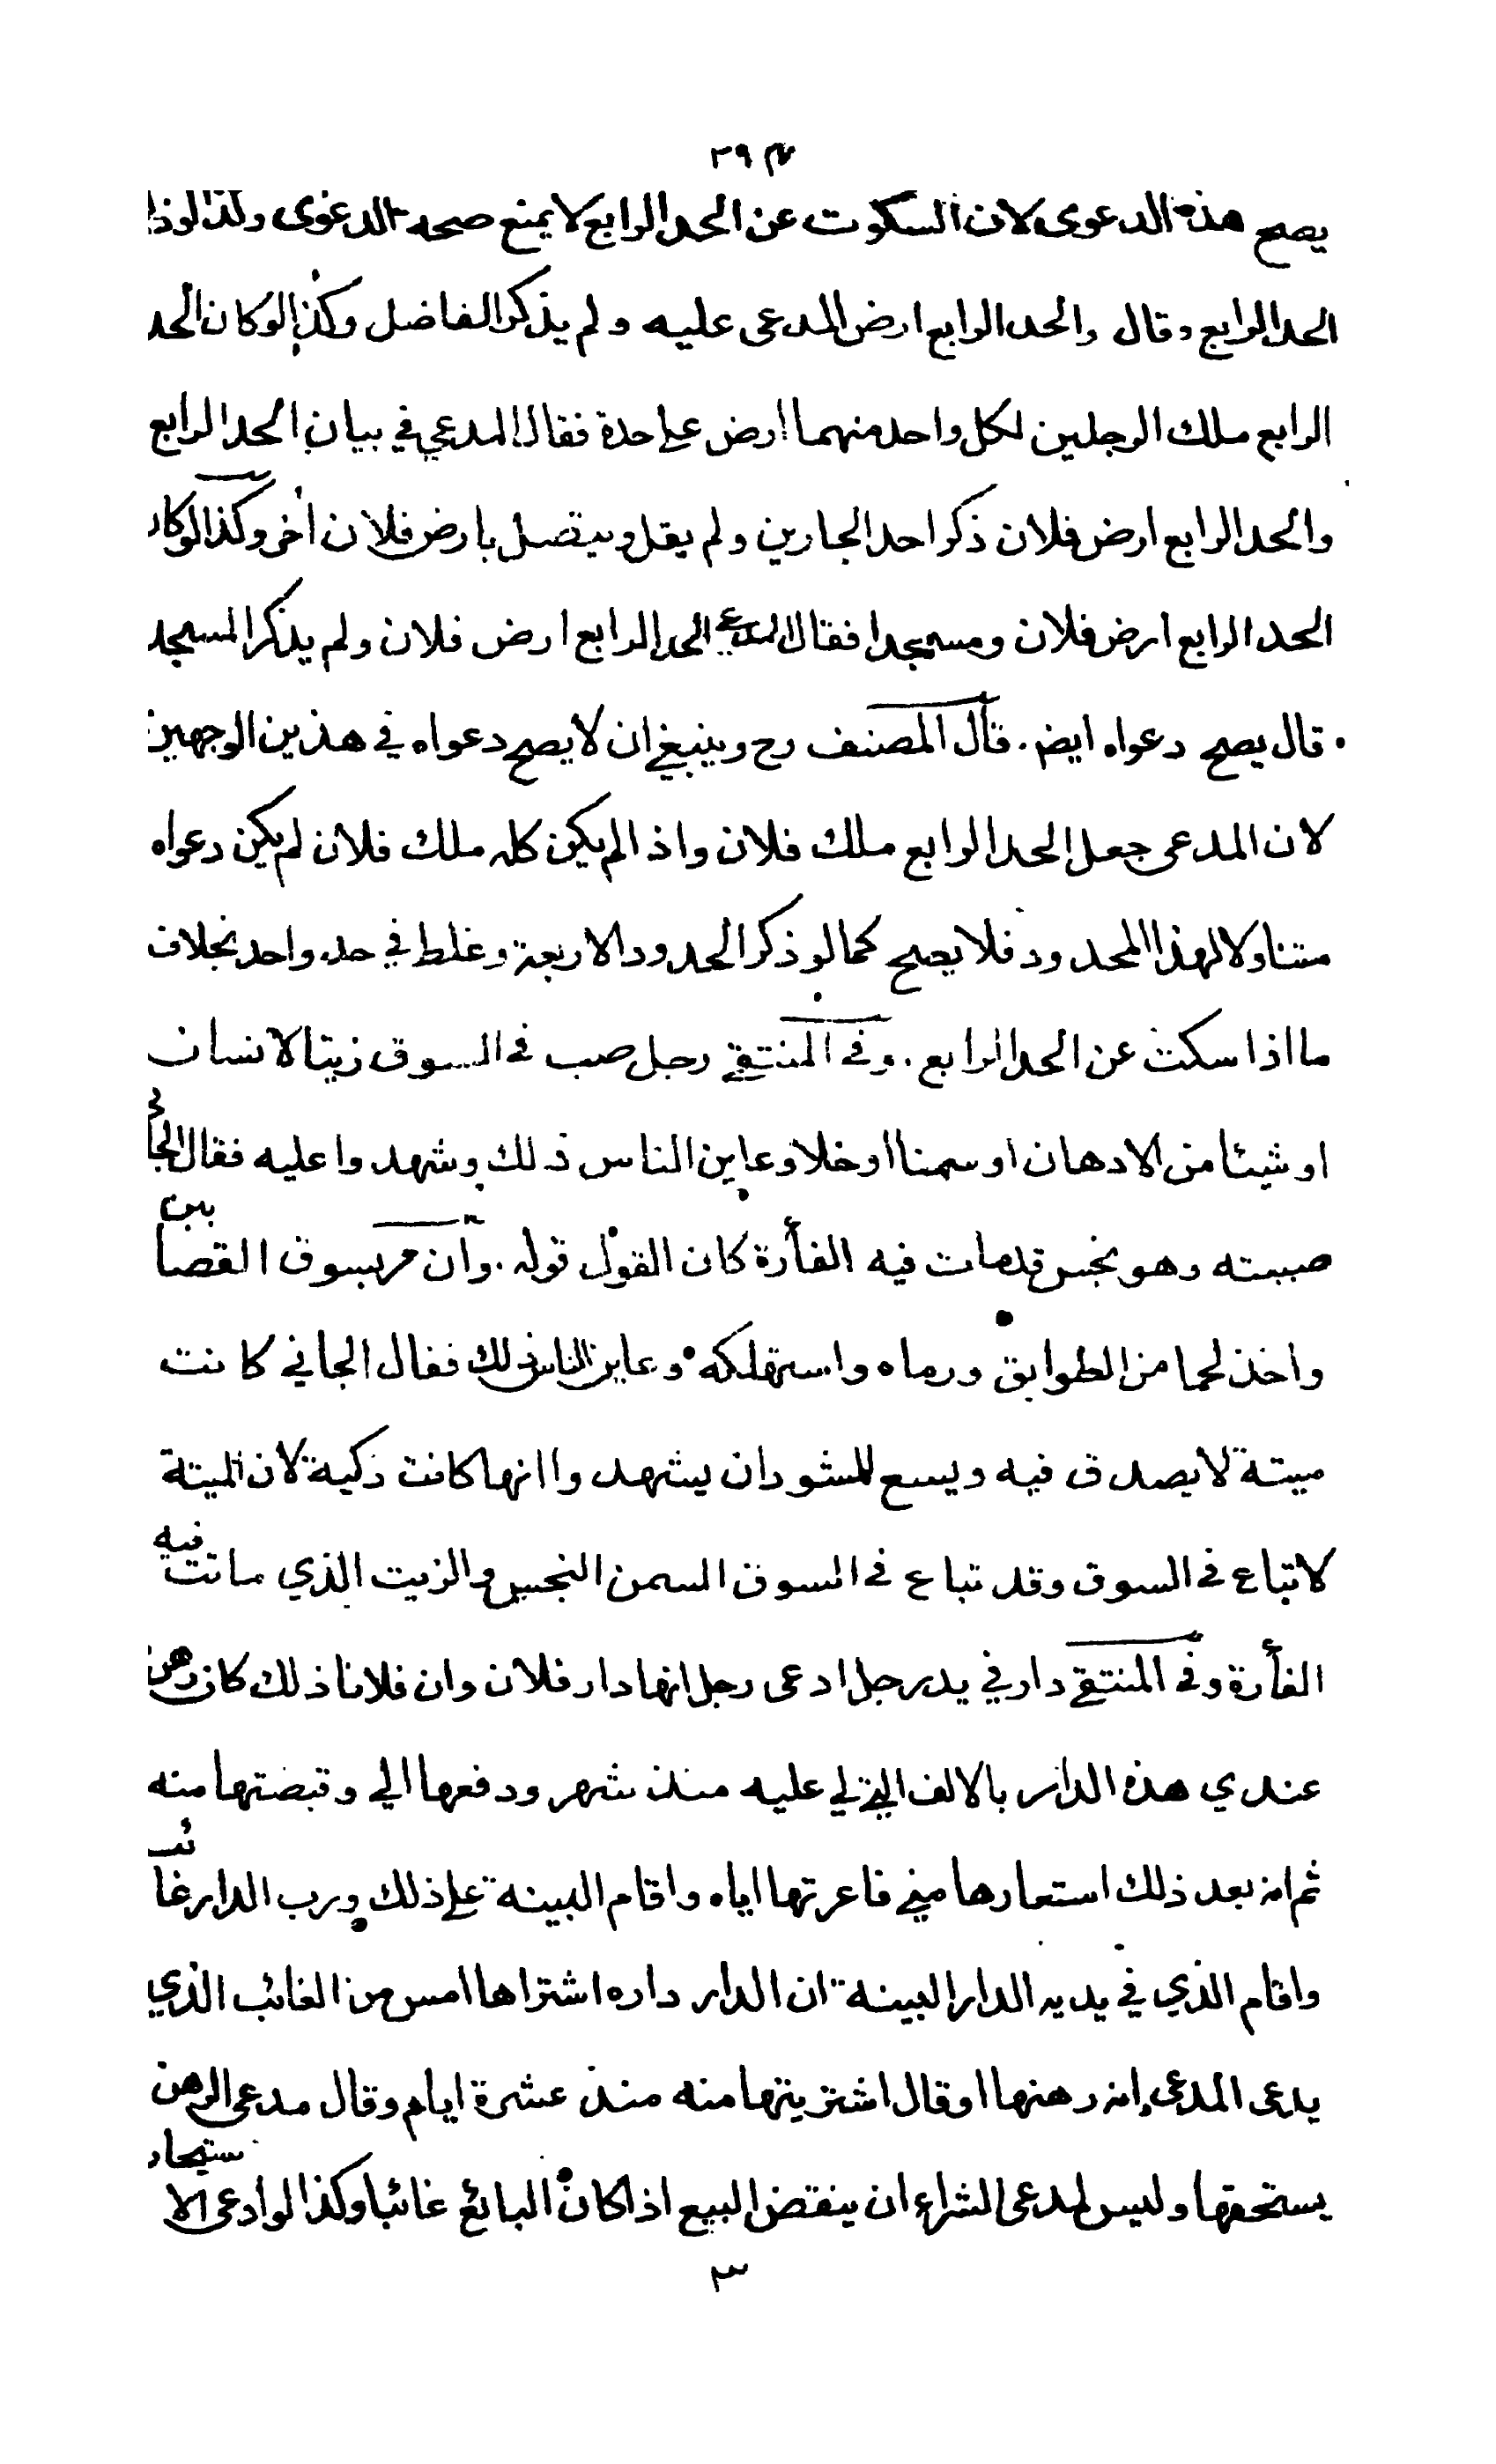 ٣٩٧
يصح هذه الدعوى لان السكوت عن الحد الرابع لا يمنع صحة الدعوى وكذا لو ذكر
الحد الرابع وقال والحد الرابع ارض المدعى عليه ولم يذكر الفاضل وكذا لو كان الحد
الرابع ملك الرجلين لكل واحد منهما ارض على حدة فقال المدعي في بيان الحد الرابع
والحد الرابع ارض فلان ذكر احد الجارين ولم يقل ويتصل بارض فلان أخر وكذا لو كان
الحد الرابع ارض فلان ومسجدا فقال المدعي الحد الرابع ارض فلان ولم يذكر المسجد
قال يصح دعواه ايض . قال المصنف رح وينبغي ان لا يصح دعواه في هذين الوجهين
لان المدعى جعل الحد الرابع ملك فلان واذا لم يكن كله ملك فلان لم يكن دعواه
متناولا لهذا المحدود فلا يصح كما لو ذكر الحدود الاربعة وغلط في حد واحد بخلاف
ما اذا سكت عن الحد الرابع . وفي المنتقي رجل صب في السوق زيتا لانسان
او شيئا من الادهان او سمنا او خلا وعاين الناس ذلك وشهدوا عليه فقال الجاني
صببته وهو نجس قد مات فيه الفأرة كان القول قوله . وان مر بسوق القصابين
واخذ لحما من الطوابق ورماه واستهلكه وعاين الناس ذلك فقال الجاني كانت
ميتة لا يصدق فيه ويسع للشهود ان يشهدوا انها كانت ذكية لان الميتة
لا تباع في السوق وقد تباع في السوق السمن النجس والزيت الذي ماتت فيه
الفأرة وفي المنتقي دار في يد رجل ادعى رجل انها دار فلان وان فلانا ذلك كان رهن
عندي هذه الدار بالالف التي لي عليه منذ شهر ودفعها الي وقبضتها منه
ثم انه بعد ذلك استعارها مني فاعرتها اياه واقام البينة على ذلك ورب الدار غائب
واقام الذي في يديه الدار البينة ان الدار داره اشتراها امس من الغائب الذي
يدعى المدعى انه رهنها او قال اشتريتها منه منذ عشرة ايام وقال مدعى الرهن
يستحقها وليس لمدعى الشراء ان ينقض البيع اذا كان البائع غائبا وكذا لو ادعى الاستيجار
٣